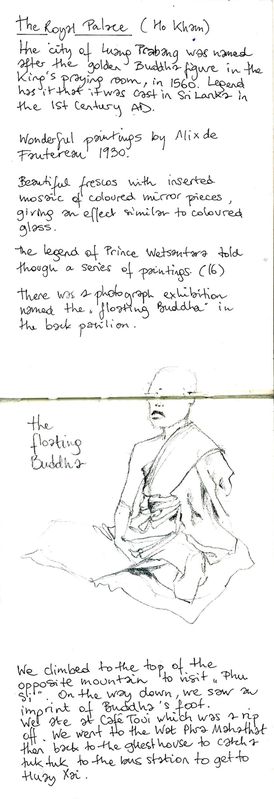 The Royal Palace (Ho Kham)
the city of Luang Prabang was named
after the golden Buddha figure in the
King's praying room, in 1560. Legend
has it that it was cast in Sri Lanka in
the 1st Century AD.
Wonderful paintings by Alix de
Fautereau 1930.
Beautiful frescos with inserted
mosaic of coloured mirror pieces,
giving an effect similar to coloured
glass.
the legend of Prince Wetsantara told
though a series of paintings (16)
There was a photograph exhibition
named the "floating Buddha" in
the back pavilion.
the
floating
Buddha
We climbed to the top of the
opposite mountain to visit "Phu
Si". On the way down, we saw an
imprint of Buddha's foot.
We ate at Café Toui which was a rip
off. We went to the Wat Phra Mahathat
then back to the guesthouse to catch a
tuk tuk to the bus station to get to
Huay Xai.